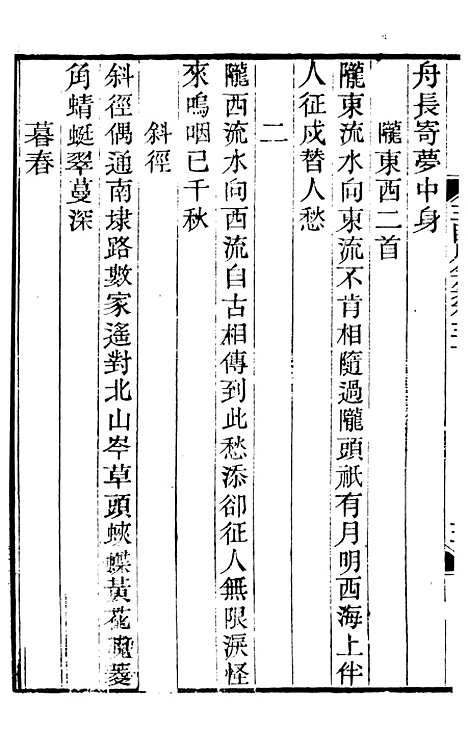 舟長寄夢中身
隴東西二首
隴東流水向東流不肯相隨過隴頭祇有月明西海上伴
人征戍替人愁
二
隴西流水向西流自古相傳到此愁添卻征人無限淚怪
來嗚咽已千秋
斜徑
斜徑偶通南埭路數家遙對北山岑草頭蛺蝶黃花晚菱
角蜻蜓翠蔓深
暮春